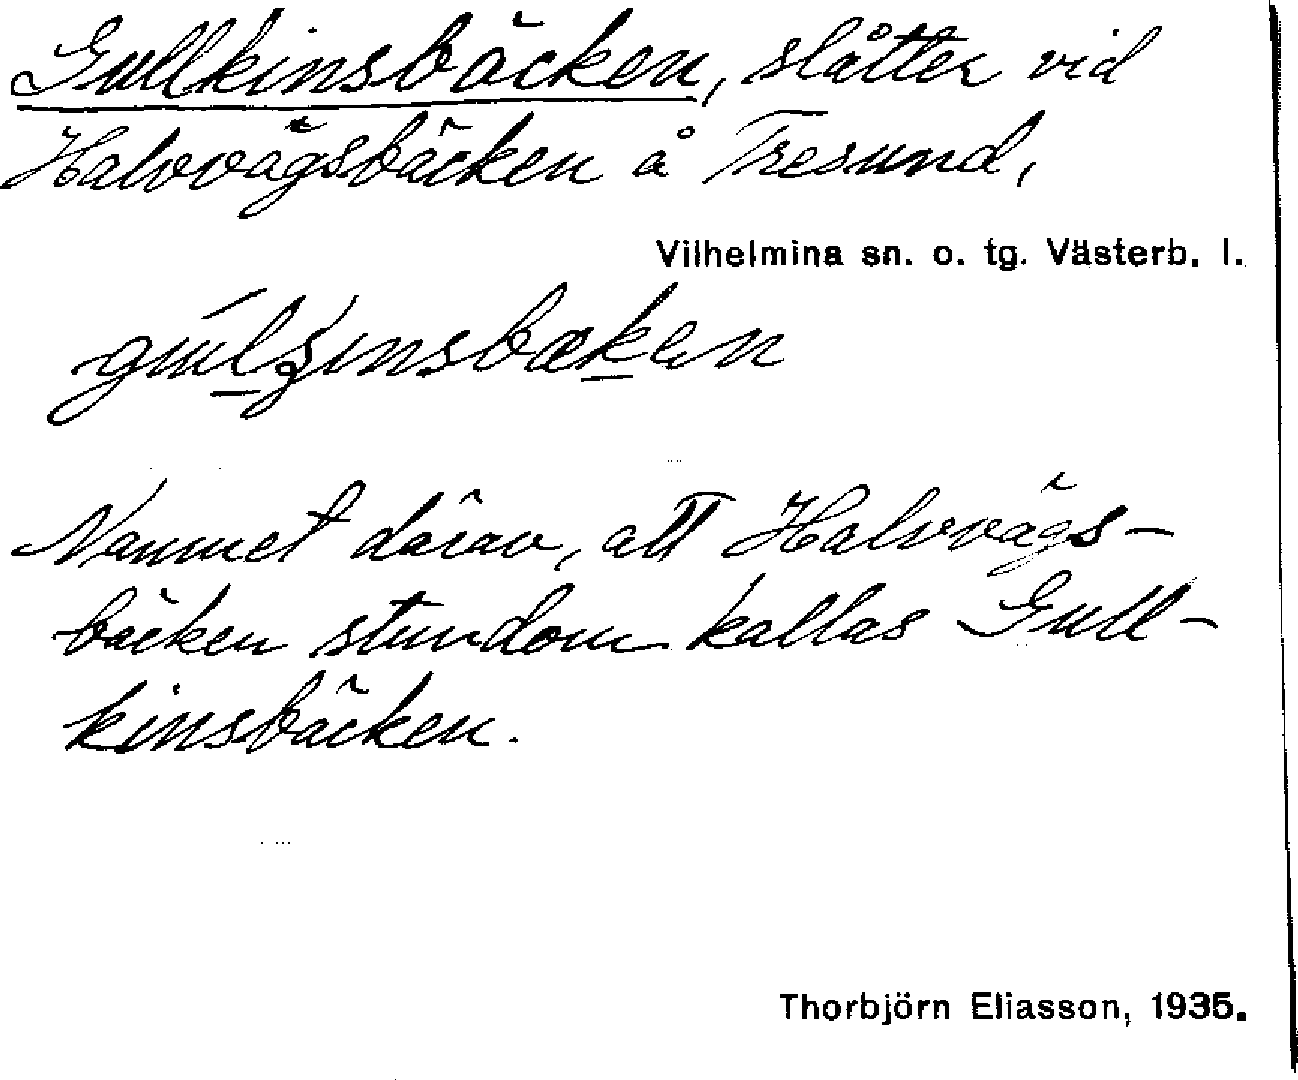 Gullkinsbäcken, slåtter vid
Halvvägsbäcken å Tresund,
Vilhelmina sn. o. tg. Västerb. l.
Namnet därav, att Halvvägs-
bäcken stundom kallas Gull-
kinsbäcken.
Thorbjörn Eliasson, 1935.